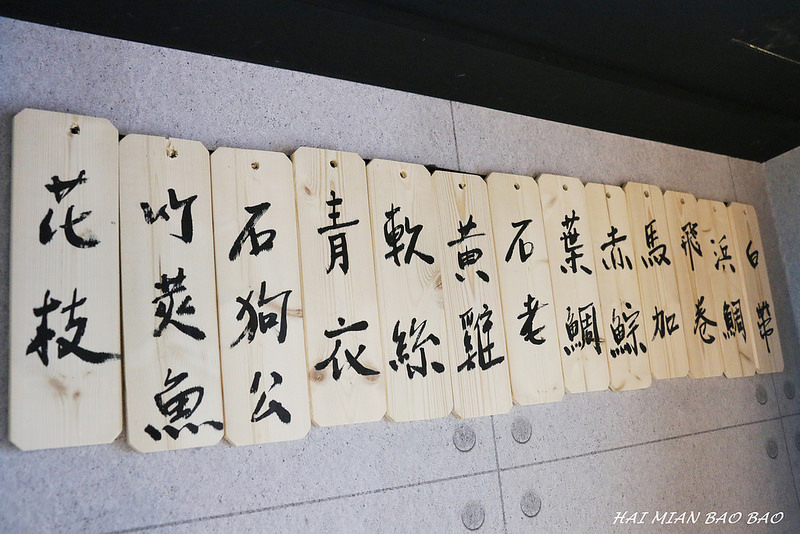 花枝
竹莢魚
石狗公
青衣
軟絲
黃雞
石老
葉鯛
赤鯮
馬加
飛卷
浜鯛
白帶
HAI MIAN BAO BAO